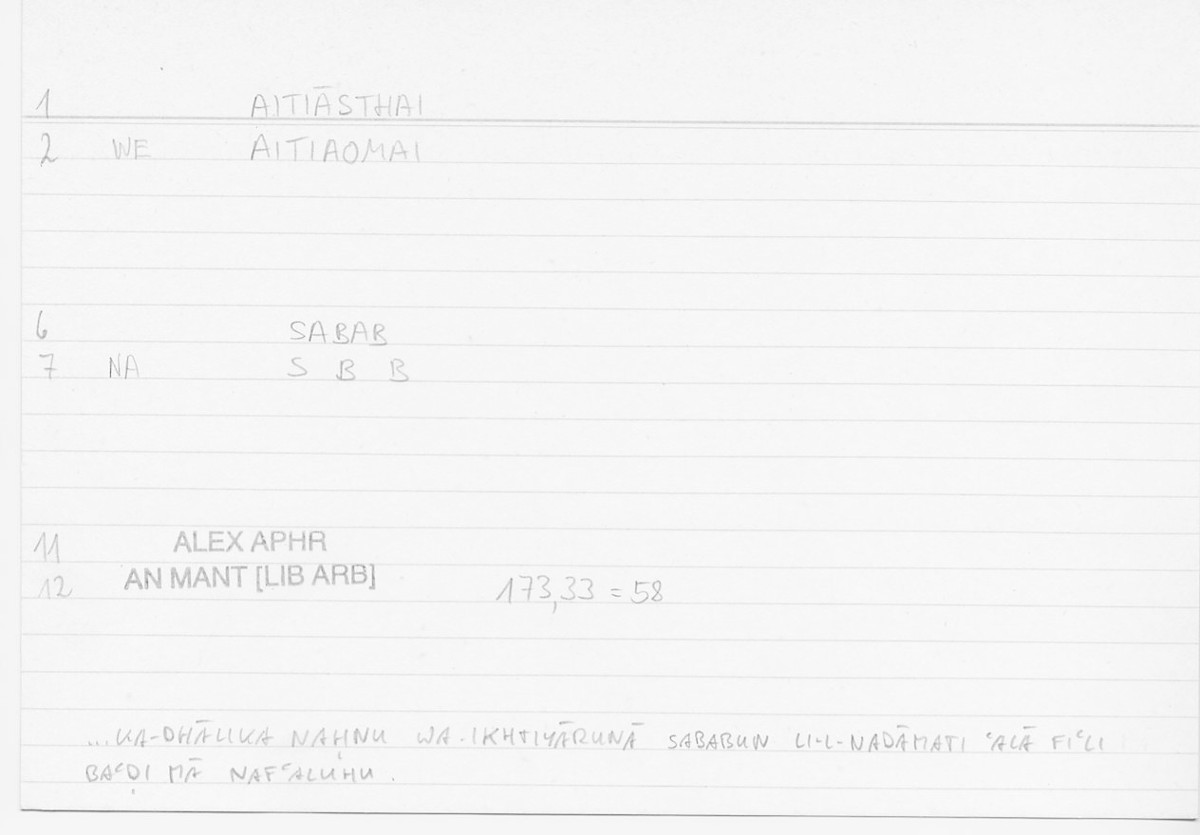 1 AITIĀSTHAI
2 WE AITIAOMAI
6 SABAB
7 NA S B B
11 ALEX APHR
12 AN MANT [LIB ARB] 173,33 = 58
...KA-DHĀLIKA NAḤNU WA-IKHTIYĀRUNĀ SABABUN LI-L-NADĀMATI ʿALĀ FIʿLI
BAʿḌI MĀ NAFʿALUHU.